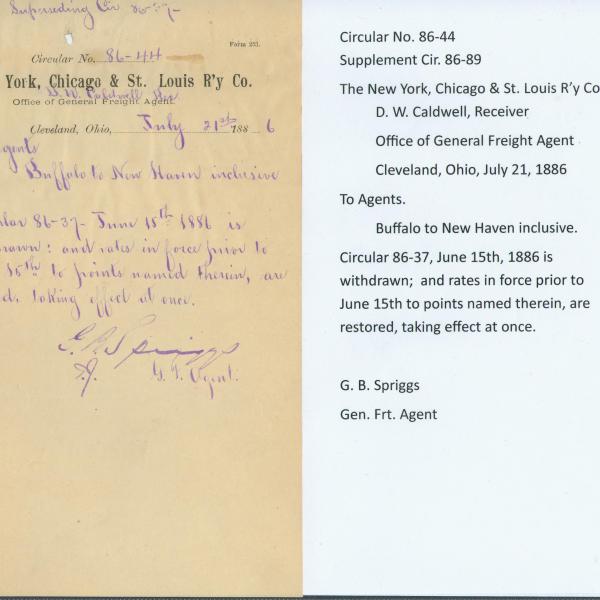 Superseding Cir 86-37-
Form 233.
Circular No. 86-44
York, Chicago & St. Louis R'y Co.
D. W. Caldwell Rec
Office of General Freight Agent.
Cleveland, Ohio, July 21st 1886
gents
Buffalo to New Haven inclusive
ular 86-37- June 15th 1886 is
rawn: and rates in force prior to
15th to points named therein, are
d. taking effect at once.
G. B. Spriggs
G. F. Agent.
Circular No. 86-44
Supplement Cir. 86-89
The New York, Chicago & St. Louis R'y Co
D. W. Caldwell, Receiver
Office of General Freight Agent
Cleveland, Ohio, July 21, 1886
To Agents.
Buffalo to New Haven inclusive.
Circular 86-37, June 15th, 1886 is
withdrawn;  and rates in force prior to
June 15th to points named therein, are
restored, taking effect at once.
G. B. Spriggs
Gen. Frt. Agent